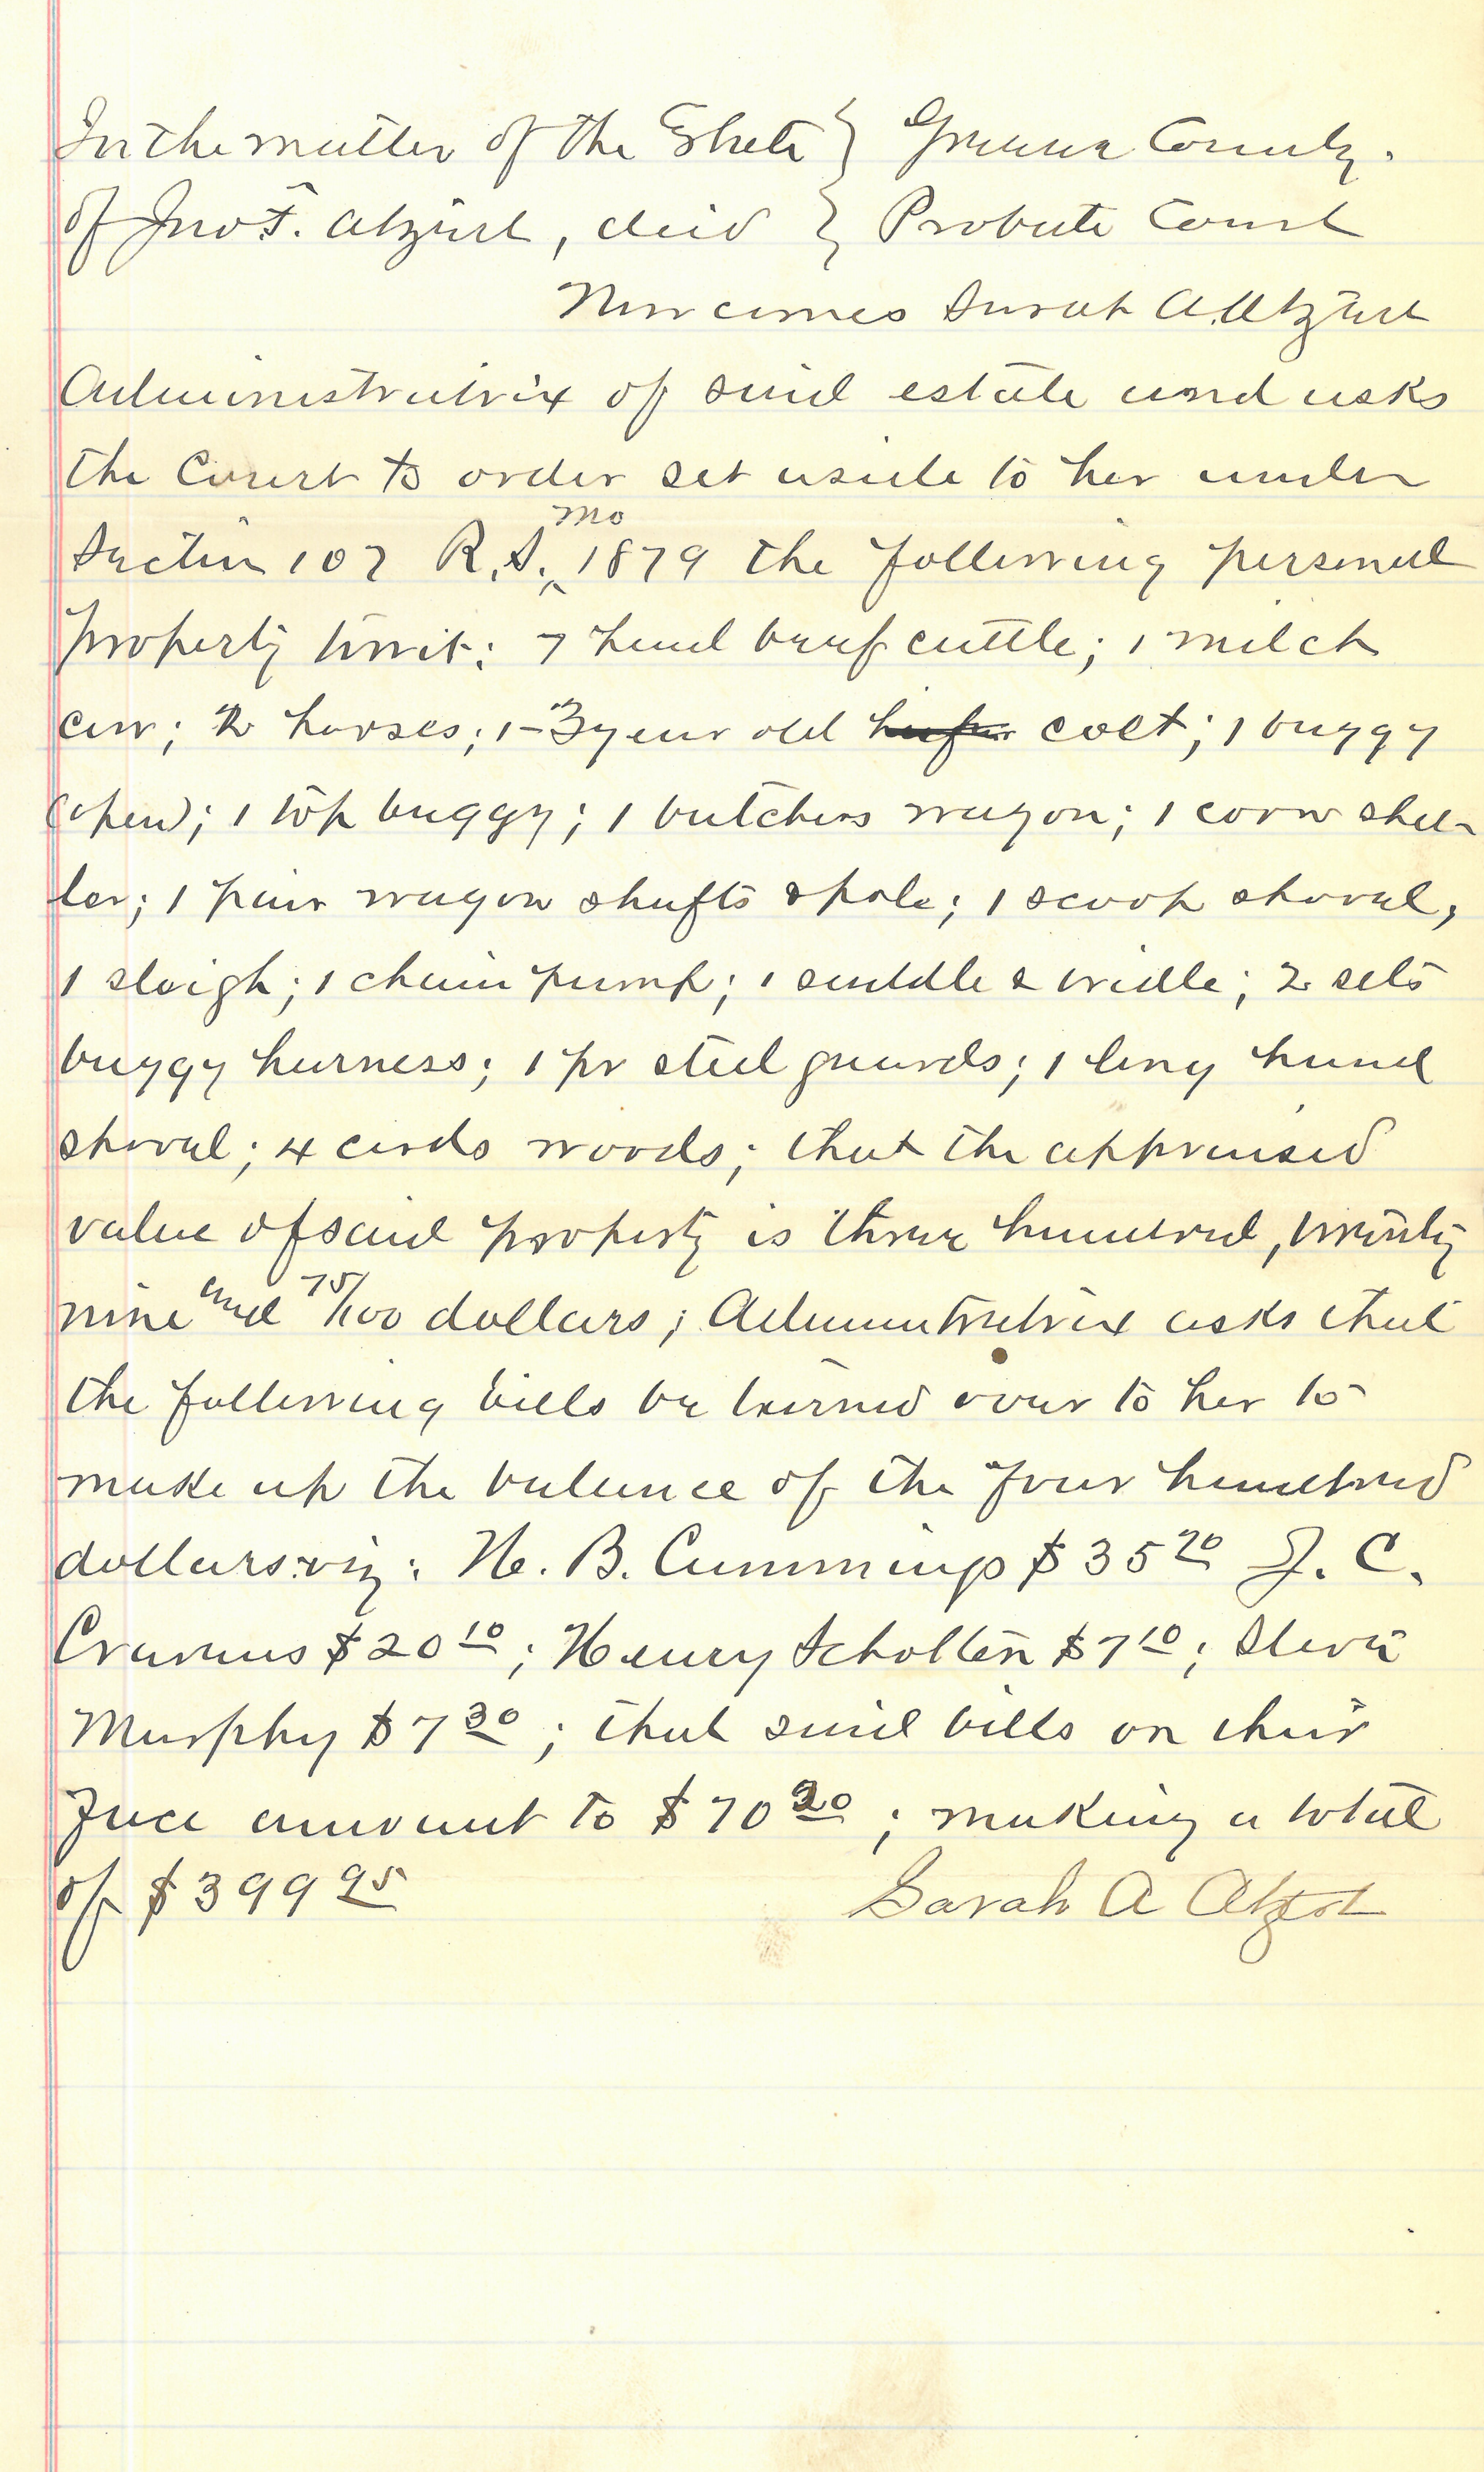 In the matter of the Estate } Greene County.
of Jno F. Atzert, decid } Probate Court
Now comes Sarah A. Atzert
Administratrix of said estate and asks
the Court to order set aside to her under
Section 107 R.S. Mo 1879 the following personal
property towit: 7 head beef cattle; 1 milch
cow; 2 horses; 1-3 year old heifer colt; 1 buggy
(open); 1 top buggy; 1 butchers wagon; 1 corn shel-
ler; 1 pair wagon shafts & pole; 1 scoop shovel,
1 sleigh; 1 chain pump; 1 saddle & bridle; 2 sets
buggy harness; 1 pr steel guards; 1 long hand
shovel; 4 cords woods; that the appraised
value of said property is three hundred, twenty
nine and 75/100 dollars; Administratrix asks that
the following bills be turned over to her to
make up the balance of the four hundred
dollars:viz: H. B. Cummings $35 70 J. C.
Cravens $20 10; Henry Scholten $7 10; Steve
Murphy $7 30; that said bills on their
face amount to $70 20; making a total
of $399 95 Sarah A Atzert